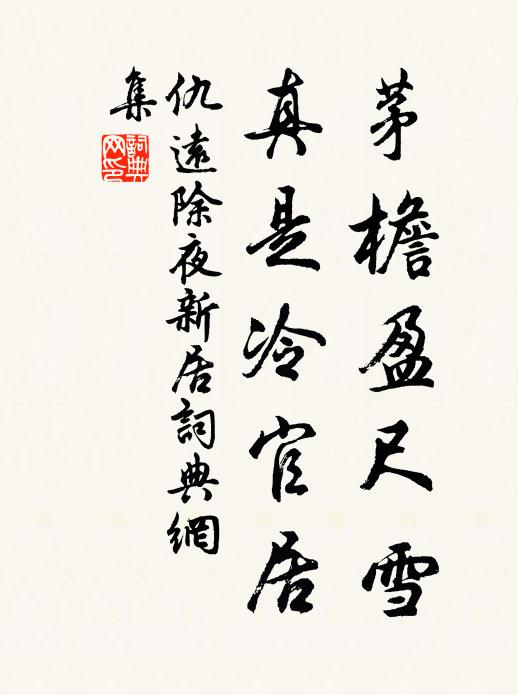 茅檐盈尺雪
真是冷官居
仇遠除夜新居詞典網
集
詞典
网印